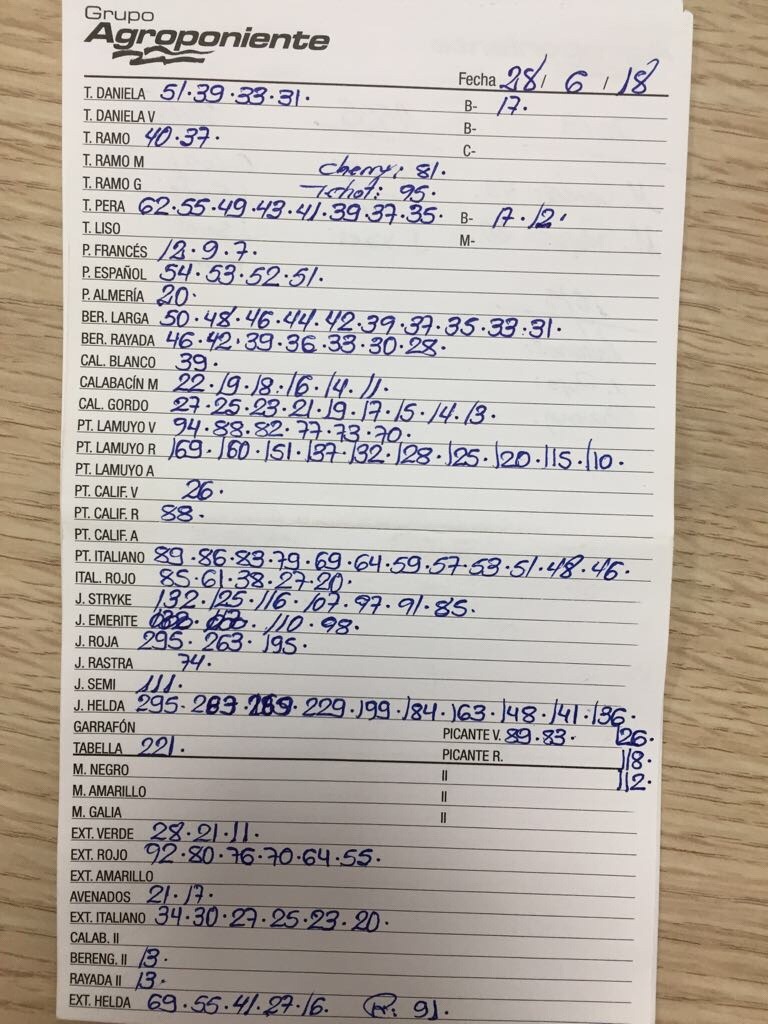 Grupo
Agroponiente
Fecha 28 / 6 / 18
T. DANIELA 51·39·33·31· B- 17·
T. DANIELA V B-
T. RAMO 40·37· C-
T. RAMO M cherry: 81·
T. RAMO G 95·
T. PERA 62·55·49·43·41·39·37·35· B- 17·12·
T. LISO M-
P. FRANCÉS 12·9·7·
P. ESPAÑOL 54·53·52·51·
P. ALMERÍA 20·
BER. LARGA 50·48·46·44·42·39·37·35·33·31·
BER. RAYADA 46·42·39·36·33·30·28·
CAL. BLANCO 39·
CALABACÍN M 22·19·18·16·14·11·
CAL. GORDO 27·25·23·21·19·17·15·14·13·
PT. LAMUYO V 94·88·82·77·73·70·
PT. LAMUYO R 169·160·151·137·132·128·125·120·115·110·
PT. LAMUYO A
PT. CALIF. V 26·
PT. CALIF. R 88·
PT. CALIF. A
PT. ITALIANO 89·86·83·79·69·64·59·57·53·51·48·46·
ITAL. ROJO 85·61·38·27·20·
J. STRYKE 132·125·116·107·97·91·85·
J. EMERITE 110·98·
J. ROJA 295·263·195·
J. RASTRA 74·
J. SEMI 111·
J. HELDA 295· 229·199·184·163·148·141·136·
GARRAFÓN PICANTE V. 89·83· 126·
TABELLA 221· PICANTE R. 118·
M. NEGRO II 112·
M. AMARILLO II
M. GALIA II
EXT. VERDE 28·21·11·
EXT. ROJO 92·80·76·70·64·55·
EXT. AMARILLO
AVENADOS 21·17·
EXT. ITALIANO 34·30·27·25·23·20·
CALAB. II
BERENG. II 13·
RAYADA II 13·
EXT. HELDA 69·55·41·27·16· R: 91·